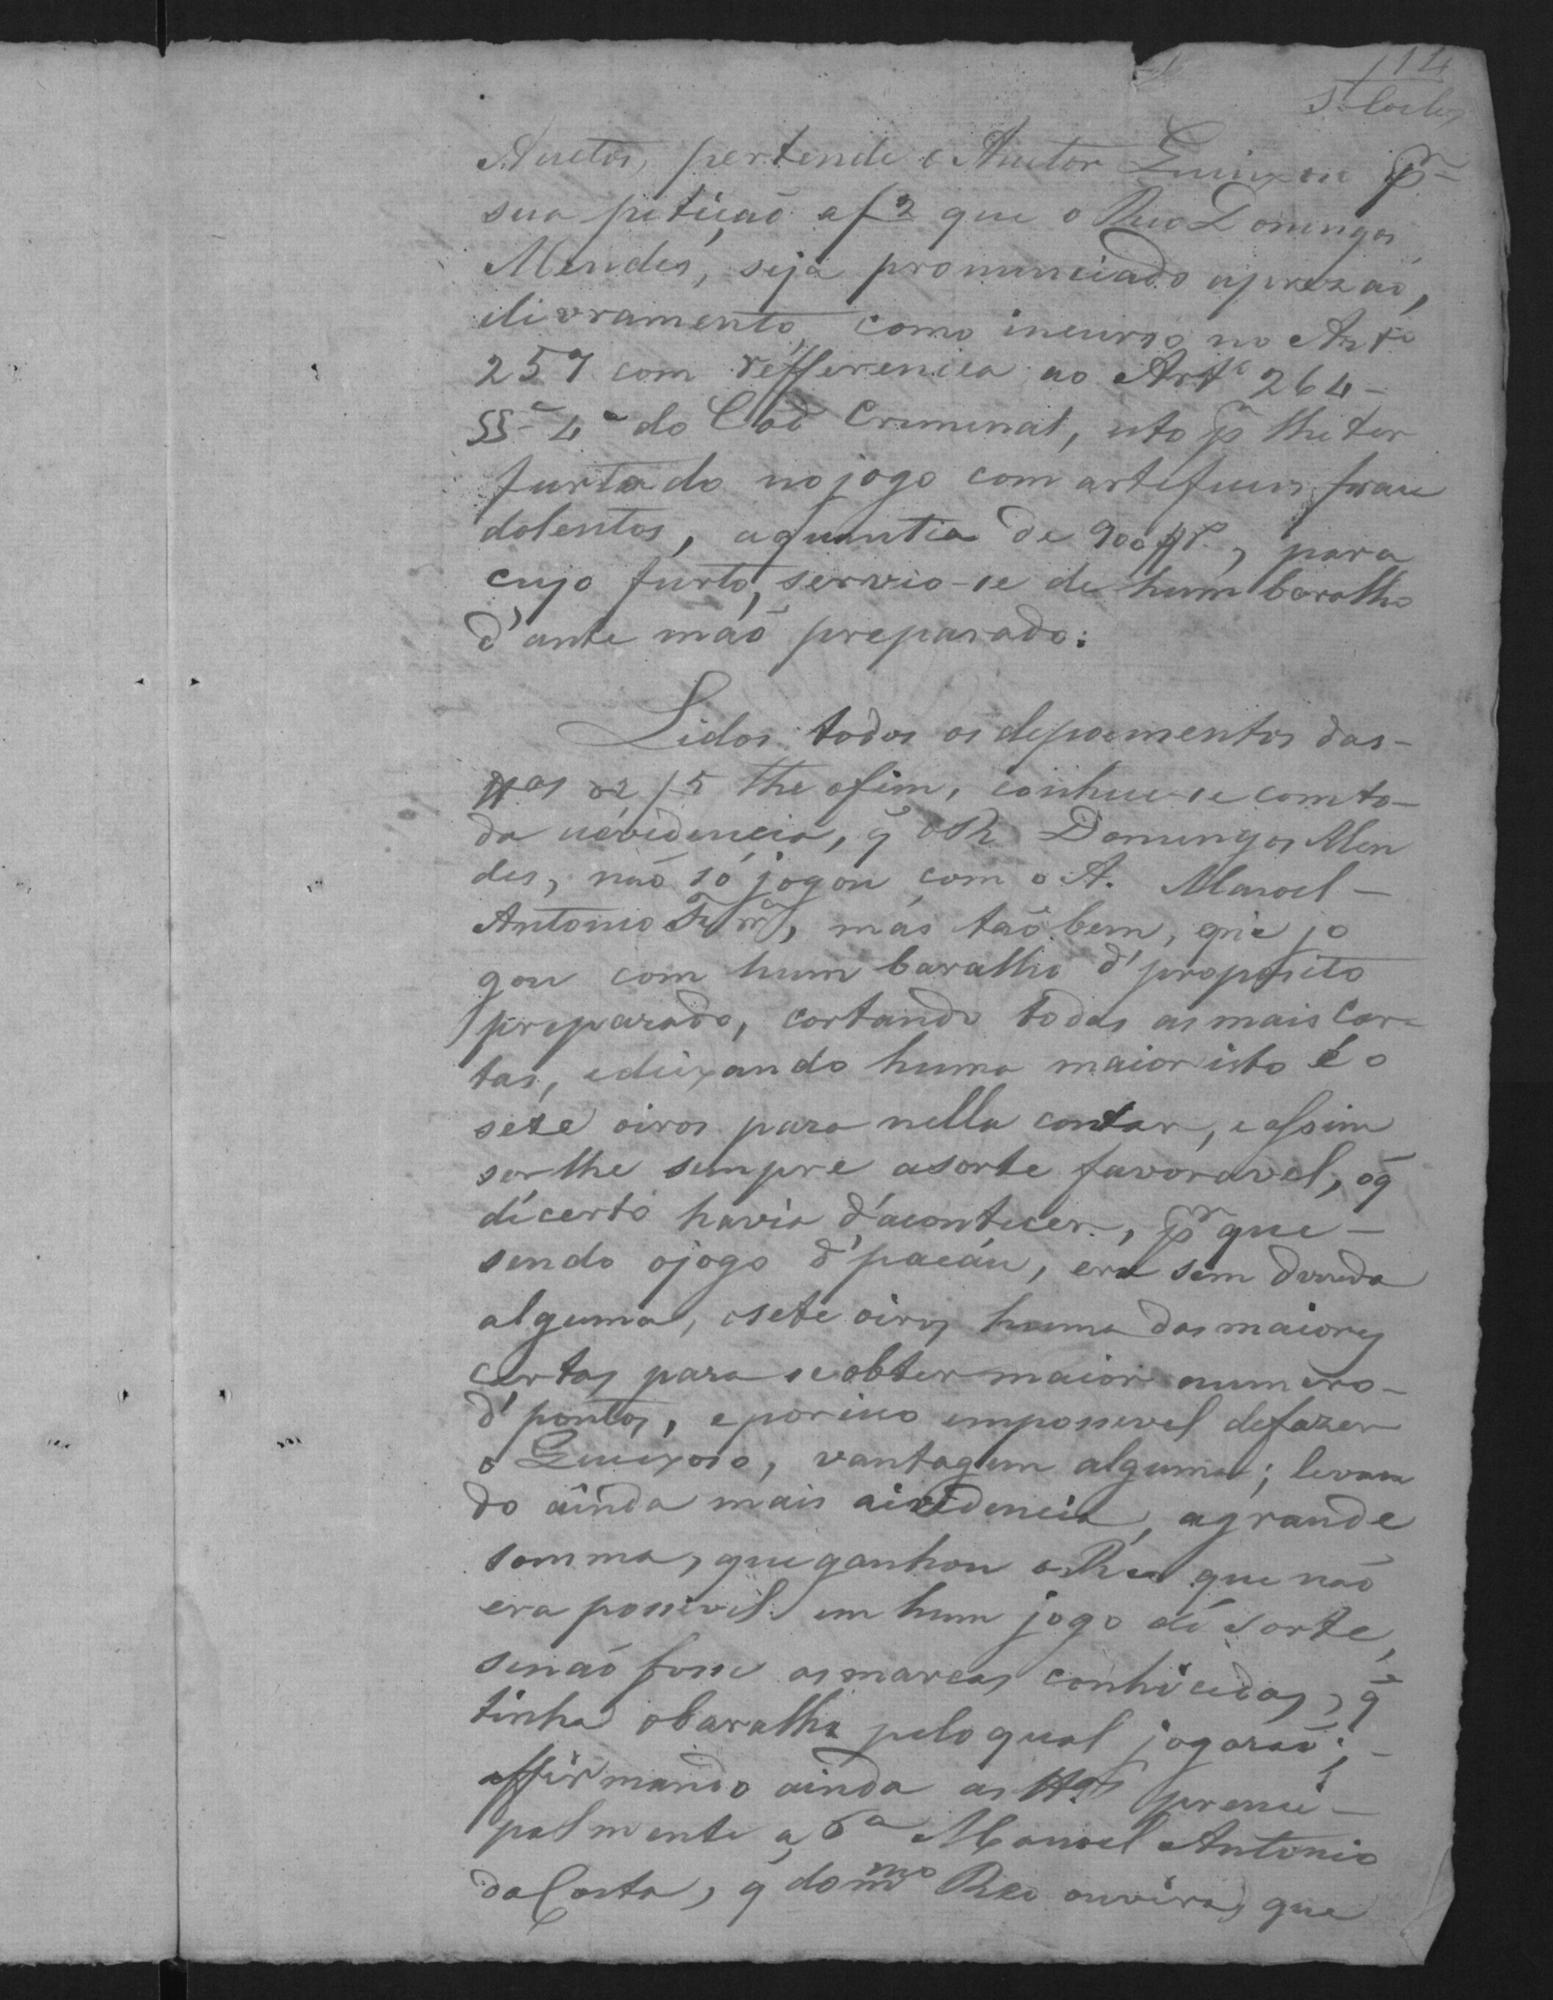 14
Auctos, pertende o Auctor Queixoso pr
sua petição a f 2 que o Reo Domingos
Mendes, seja pronunciado aprezaõ,
elivramento, como incurso no Arto
257 com refferencia ao Arto 264 –
§§ 4º do Cod Criminal, isto pr lhe ter
furtado no jogo com artefícios frau
dolentos, aquantia de 900$rs, para
cujo furto, servio-se de hum baralho
d'ante mão preparado.
Lidos todos os depoimentos das –
ttas a f 5 the ofim, conhece-se comto-
da aévidencia, q̃ oR Domingos Men
des, não só jogou com o A. Manoel –
Antonio, más tão bem, que jo
gou com hum baralho d'proposito
preparado, cortando todas as mais Car-
tas, edeixando huma maior isto é o
sete oiros para nella contar, e assim
serlhe sempre asorte favoravel, oq̃
dicerto havia d'acontecer, pr que –
sendo ojogo d'pacáu, era sem duvida
alguma, osete oiros huma das maiores
cartas para seobter maior numero –
d'pontos, eporisso impossivel defazer
o Queixoso, vantagem alguma; levan
do ainda mais aividencia, agrande
somma, queganhou oReo que não
era possivel em hum jogo dé sorte,
senaõ fosse asmarcas conhicidas, q̃
tinha obaralho pelo qual jogaraõ; –
affirmando ainda as ttas princi –
palmente a, 6a Manoel Antonio
da Costa, q̃ dommo Reo ouvira, que